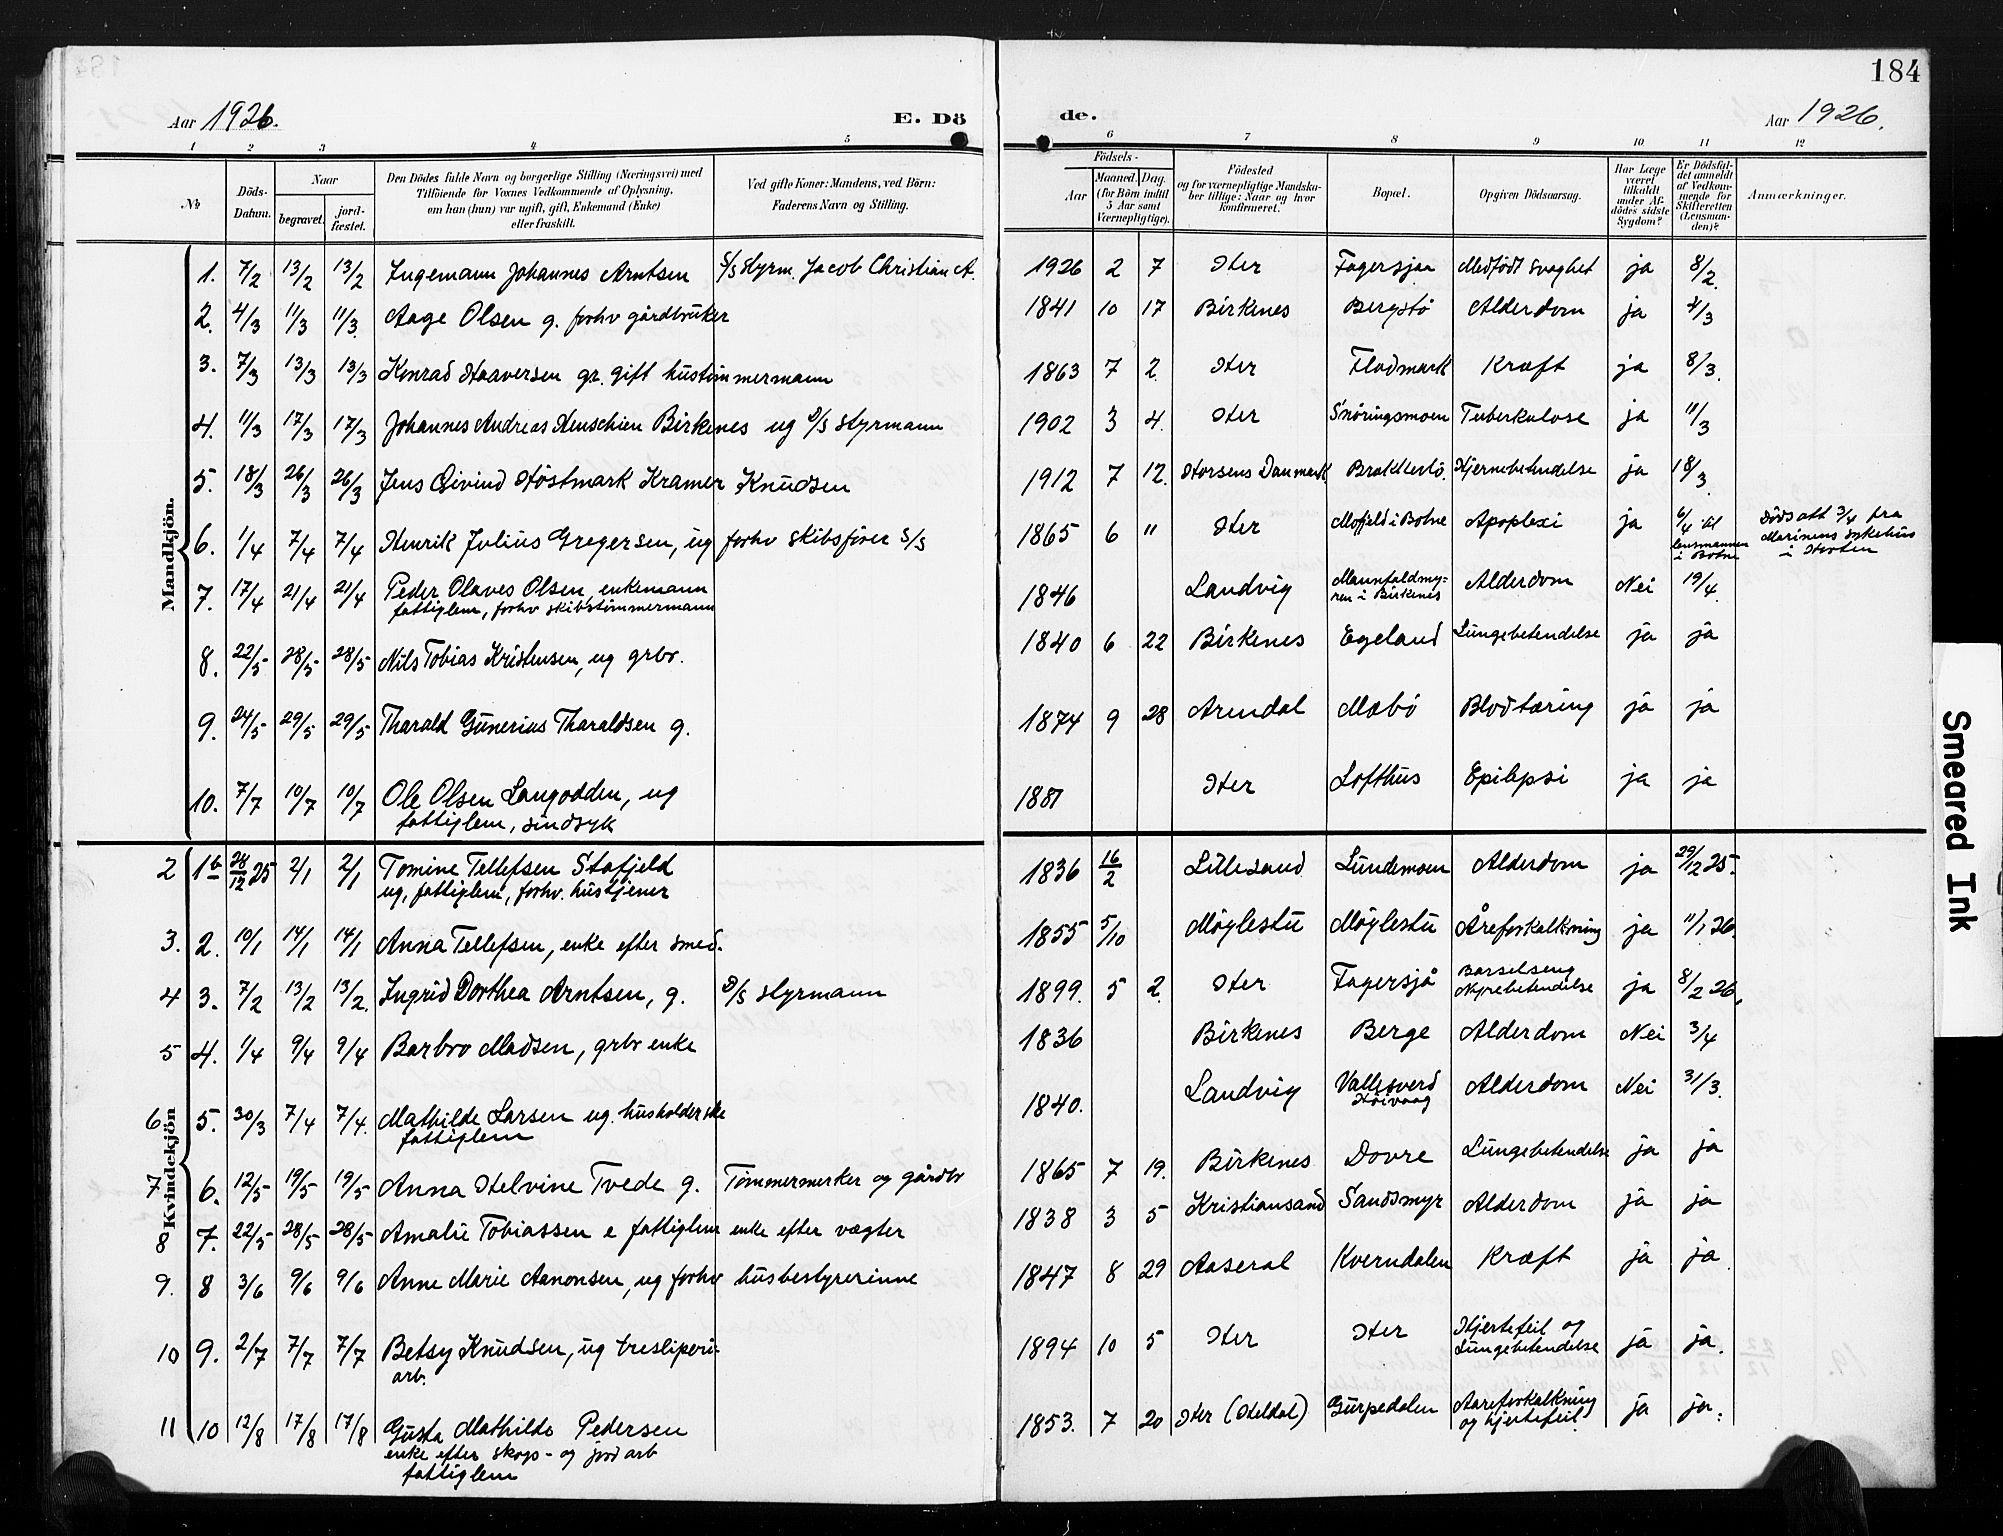 184
Aar 1926. E. Dö de. Aar 1926.
1 2 3 4 5 6 7 8 9 10 11 12
No. Döds-Datum. Naar begravet. jord-fæstet. Den Dödes fulde Navn og borgerlige Stilling (Næringsvei) med Tilföiende for Voxnes Vedkommende af Oplysning, om han (hun) var ugift, gift, Enkemand (Enke) eller fraskilt. Ved gifte Koner: Mandens, ved Börn: Faderens Navn og Stilling. Födsels- Aar Maaned. Dag. (for Börn indtil 5 Aar samt Værnepligtige). Födested og for værnepligtige Mandskaber tillige: Naar og hvor konfirmeret. Bopæl. Opgiven Dödsaarsag. Har Læge været tilkaldt under Afdödes sidste Sygdom? Er Dödsfaldet anmeldt af Vedkommende for Skifteretten (Lensmanden)? Anmærkninger.
Mandkjön.
1. 7/2 13/2 13/2 Ingemann Johannes Arntsen S/S styrm. Jacob Christian A. 1926 2 7 Her Fagersjaa Medfödt svaghet ja 8/2.
2. 4/3 11/3 11/3. Aage Olsen g. forhv gårdbruker 1841 10 17 Birkenes Bergstö Alderdom ja 4/3
3. 7/3 13/3 13/3 Konrad Haaversen gr. gift hustömmermann 1863 7 2. Her Flodmark Kræft ja 8/3.
4. 11/3 17/3 17/3 Johannes Andreas Henschien Birkenes ug D/S styrmann 1902 3 4. Her Snöringsmoen Tuberkulose ja 11/3
5. 18/3 26/3 26/3 Jens Eivind Höstmark Kramer Knudsen 1912 7 12. Horsens Danmark Brækkestö. Hjernebetendelse ja 18/3.
6. 1/4 7/4 7/4 Henrik Julius Gregersen, ug forhv skibsförer S/S 1865 6 11 Her Mofjeld i Botne Apoplexi ja 6/4 til lensmannen i Botne Dödsatt 3/4 fra Marinens sykehus i Horten
7. 17/4 21/4 21/4 Peder Olaves Olsen, enkemann
fattiglem, forhv skibstömmermann 1846 Landvig Mannfaldmyren i Birkenes Alderdom Nei 19/4.
8. 22/5 28/5 28/5 Nils Tobias Kristensen, ug grbr. 1840 6 22 Birkenes Egeland Lungebetendelse ja ja
9. 24/5 29/5 29/5 Tharald Gunerius Tharaldsen g. 1874 9 28 Arendal Mæbö Blodtæring ja ja
10. 7/7 10/7 10/7 Ole Olsen Langodden, ug
fattiglem, sindsyk 1887 Her Lofthus Epilepsi ja ja
Kvindekjön
2 1b 28/12 25 2/1 2/1 Tomine Tellefsen Stafjeld
ug, fattiglem, forhv. hustjener 1836 16/2 Lillesand Lundemoen Alderdom ja 29/12 25.
3. 2. 10/1 14/1 14/1 Anna Tellefsen, enke efter smed. 1855 5/10 Möglestu Möglestu Åreforkalkning ja 11/1 26.
4 3. 7/2 13/2 13/2. Ingrid Dorthea Arntsen, g. D/S styrmann 1899. 5 2. Her Fagersjå Barselseng Nyrebetendelse ja 8/2 26.
5 4. 1/4 9/4 9/4 Barbro Madsen, grbr enke 1836 Birkenes Berge Alderdom Nei 3/4
6 5. 30/3 7/4 7/4. Mathilde Larsen ug. husholderske
fattiglem 1840. Landvig Vallesverd Höivaag Alderdom Nei 31/3.
7 6. 12/5 19/5 19/5 Anna Helvine Tvede g. Tömmermerker og gårdbr 1865 7 19. Birkenes Dovre Lungebetendelse ja ja
8 7. 22/5 28/5 28/5 Amalie Tobiassen e fattiglem enke efter vægter 1838 3 5 Kristiansand Sandsmyr Alderdom ja ja
9. 8 3/6 9/6 9/6 Anne Marie Aanonsen, ug forhv husbestyrerinne 1847 8 29 Aaseral Kverndalen Kræft ja ja
10 9. 2/7 7/7 7/7 Betsy Knudsen, ug tresliperi-
arb. 1894 10 5 Her Her Hjertefeil og Lungebetendelse ja ja.
11 10 12/8 17/8 17/8 Gusta Mathilde Pedersen
enke efter skogs- og jordarb
fattiglem 1853. 7 20 Her (Heldal) Gurpedalen Aareforkalkning og hjertefeil. ja ja.
Smeared Ink